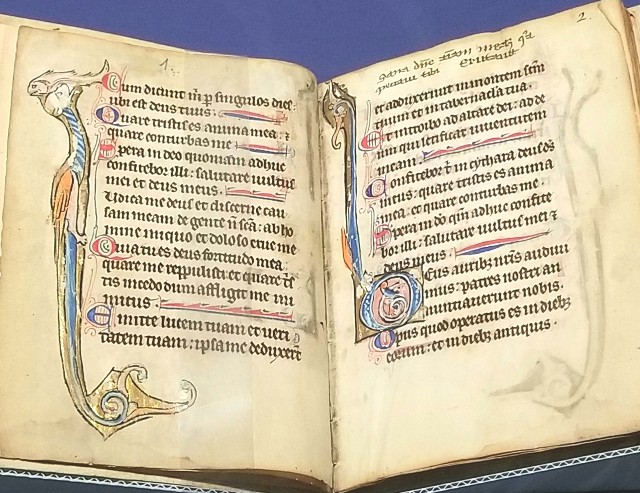 1.
Cum dicunt m̃ p̲ singulos dies:
ubi est deus tuus.
Quare tristis es anima mea: ⁊
quare conturbas me
Spera in deo quoniam adhuc
confitebor illi: salutare vultus
mei et deus meus.
Iudica me deus et discerne cau
sam meam de gente ñ scã: ab ho
mine iniquo et doloso erue me
Quia tu es deus fortitudo mea:
quare me reppulisti et quare t̃s
tis incedo dum affligit me ini
micus.
Emitte lucem tuam et veri
tatem tuam: ipsa me deduxert
2.
et adduxerunt in montem scm̃
tuum et in tabernacla tua.
Et introibo ad altare dei: ad de
um qui letificat iuventutem
meam.
Confitebor t̃ in cythara deus ds̃
meus: quare tristis es anima
mea: et quare conturbas me.
Spera in do qm̃ adhuc confite
bor illi: salutare vultus mei ⁊
deus meus.
Deus auribz nr̃is audivi
mus: patres nostri an
nuntiaverunt nobis.
Opus quod operatus es in diebz
eorum: et in diebz antiquis.